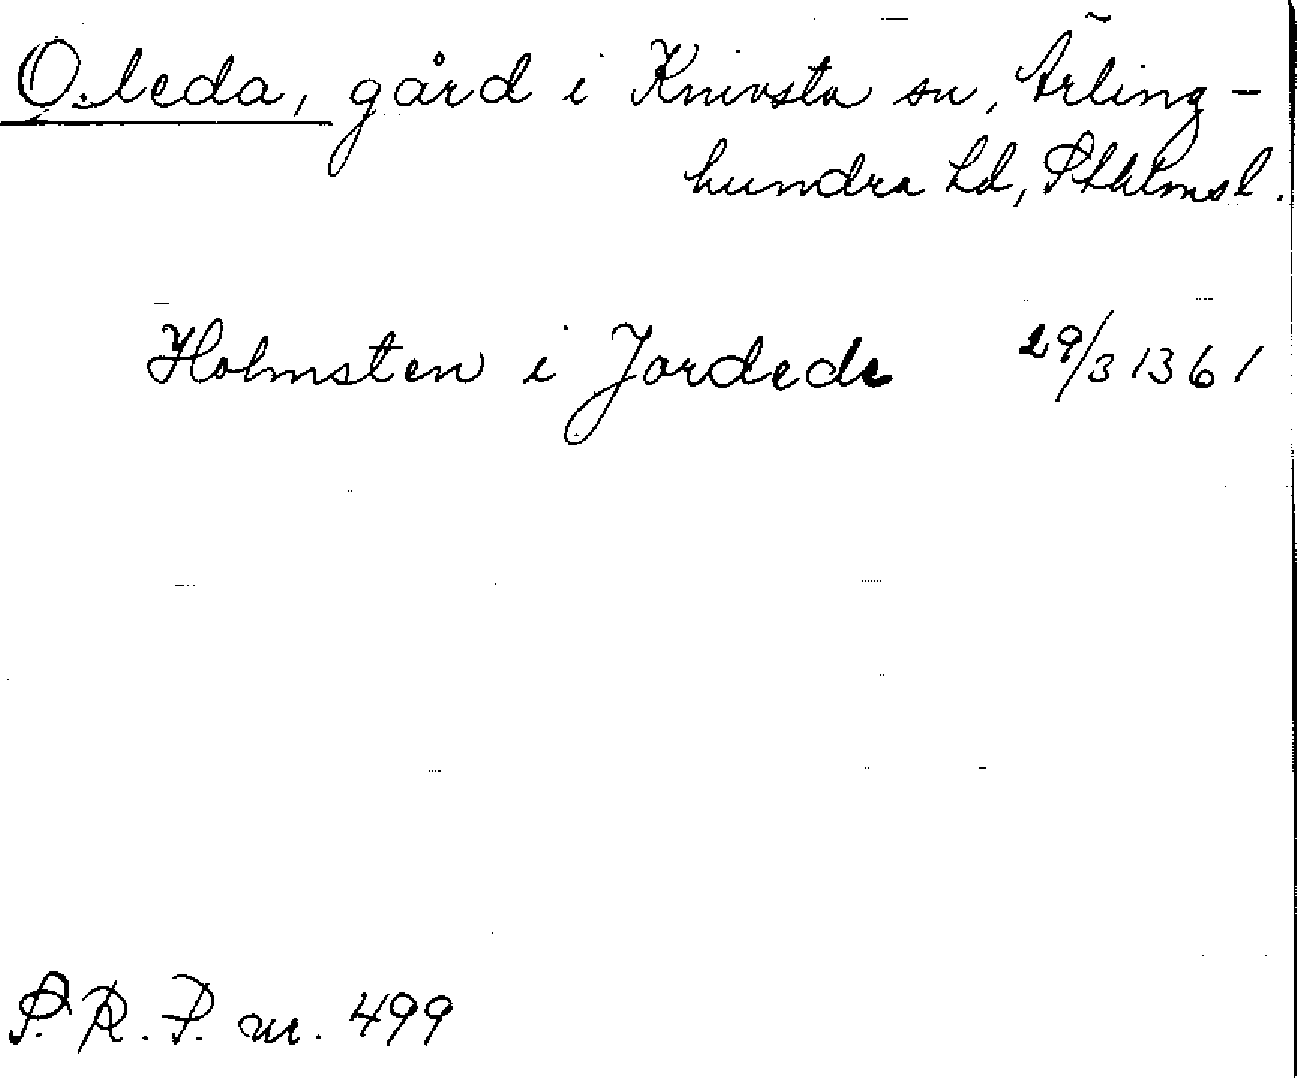 Ö. leda, gård i Knivsta sn, Ärling-
hundra hd, Sthlmsl.
Holmsten i Jordede 29/3 1361
S.R.P. nr. 499